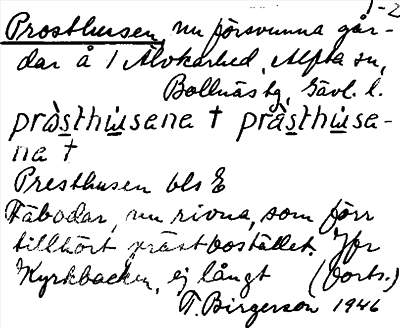 1-2
Prosthusen, nu försvunna går-
dar å 1 Älvkarhed, Alfta sn,
Bollnäs tg, Gävl. l.
pràsthusana † pråsthusa-
na †
Presthusen bls E
Fäbodar, nu rivna, som förr
tillhört prästbostället. Jfr
Kyrkbacken, ej långt (forts.)
T. Birgerson 1946